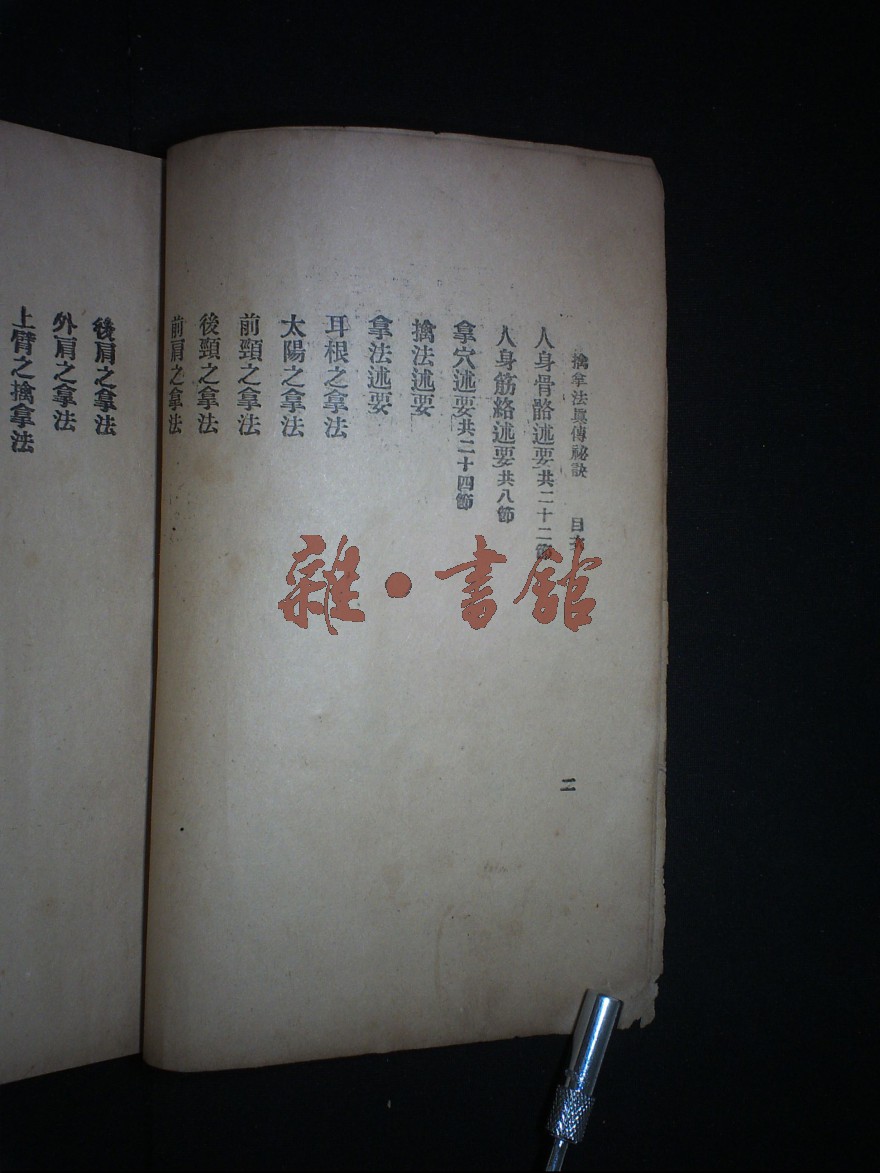 擒拿法眞傳祕訣 目次
人身骨骼述要共二十二節
人身筋絡述要共八節
拿穴述要共二十四節
擒法述要
拿法述要
耳根之拿法
太陽之拿法
前頸之拿法
後頸之拿法
前肩之拿法
二
後肩之拿法
外肩之拿法
上臂之擒拿法
雜·書館